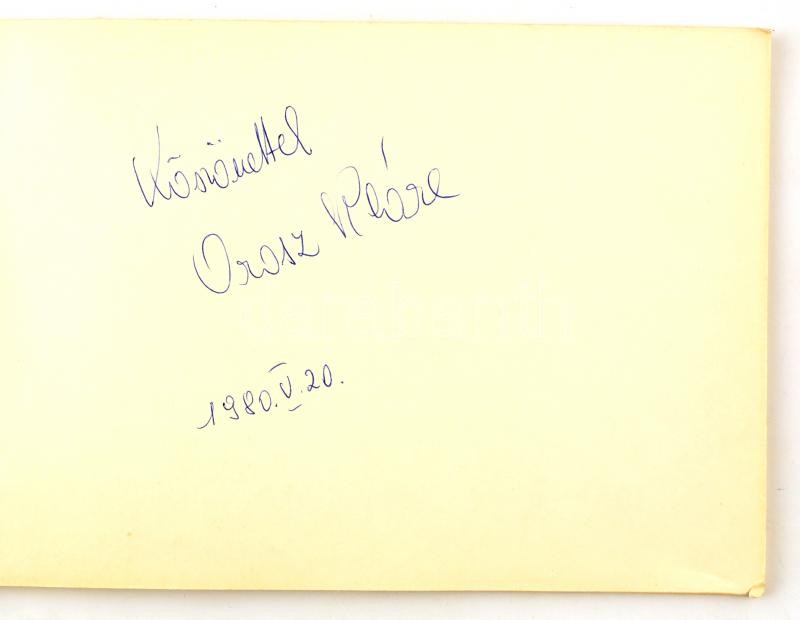 Köszönettel
Orosz Klára
1980.V.20.